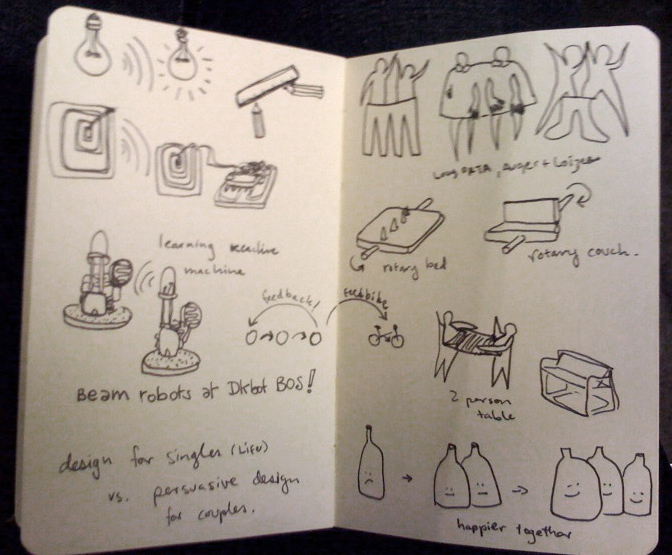 learning reactive
machine
feedback!
Beam robots at Dkbot BOS!
design for singles (Lieu)
vs. persuasive design
for couples.
Auger + Loizeau
rotary bed
rotary couch.
feedbike
2 person
table
happier together